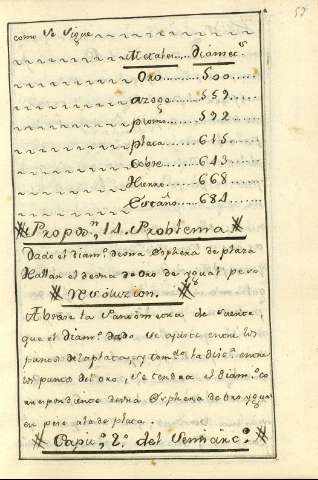 57
como se sigue
Metales.....diamet.ˢ
Oro.....500
azoge.....559
plomo.....592
plata.....615
Cobre.....643
Hierro.....668
Estaño.....684
Propos.ⁿ 14. Problema
Dado el diam.º de una Esphera de plata
Hallar el de una de Oro de ygual peso
Resoluzion.
Abrase la Pantometra de suerte,
que el diam.º dado se ajuste entre los
puntos de la plata, y tom.ᵈᵒ la dist.ª entre
los puntos del oro, se tendra el diam.º co
rrespondiente de una Esphera de Oro ygual
en peso a la de plata.
Capit.º 2.º del